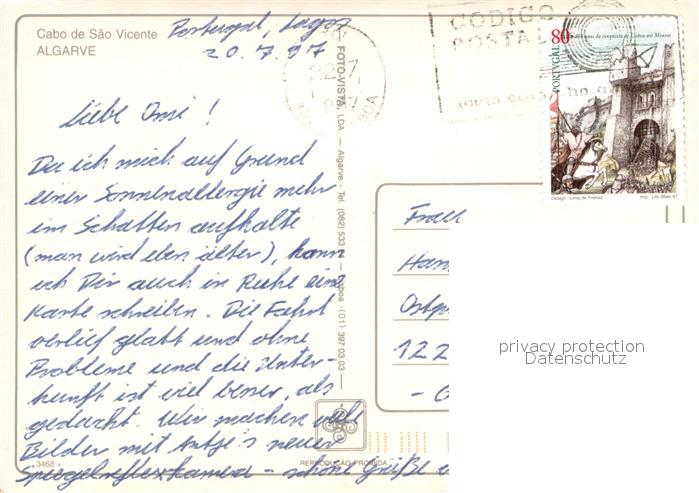 Cabo de São Vicente
ALGARVE
Portugal, Lagos
20.7.97
Liebe Omi!
Da ich mich auf Grund
einer Sonnenallergie mehr
im Schatten aufhalte
(man wird eben älter), kann
ich Dir auch in Ruhe eine
Karte schreiben. Die Fahrt
verlief glatt und ohne
Probleme und die Unter-
kunft ist viel besser, als
gedacht. Wir machen viele
Bilder mit Antje's neuer
Spiegelreflexkamera - schöne Grüße
3468
REPRODUÇÃO PROIBIDA
FOTO-VISTA, LDA. — Algarve - Tel. (082) 533 — Lisboa - (011) 397 03 03
CODIGO
POSTAL
80
PORTUGAL
anos da conquista de Lisboa aos Mouros
Design: Lima de Freitas
Imp: Lito Maia 97
Frau
Han
Ostp
122
privacy protection
Datenschutz